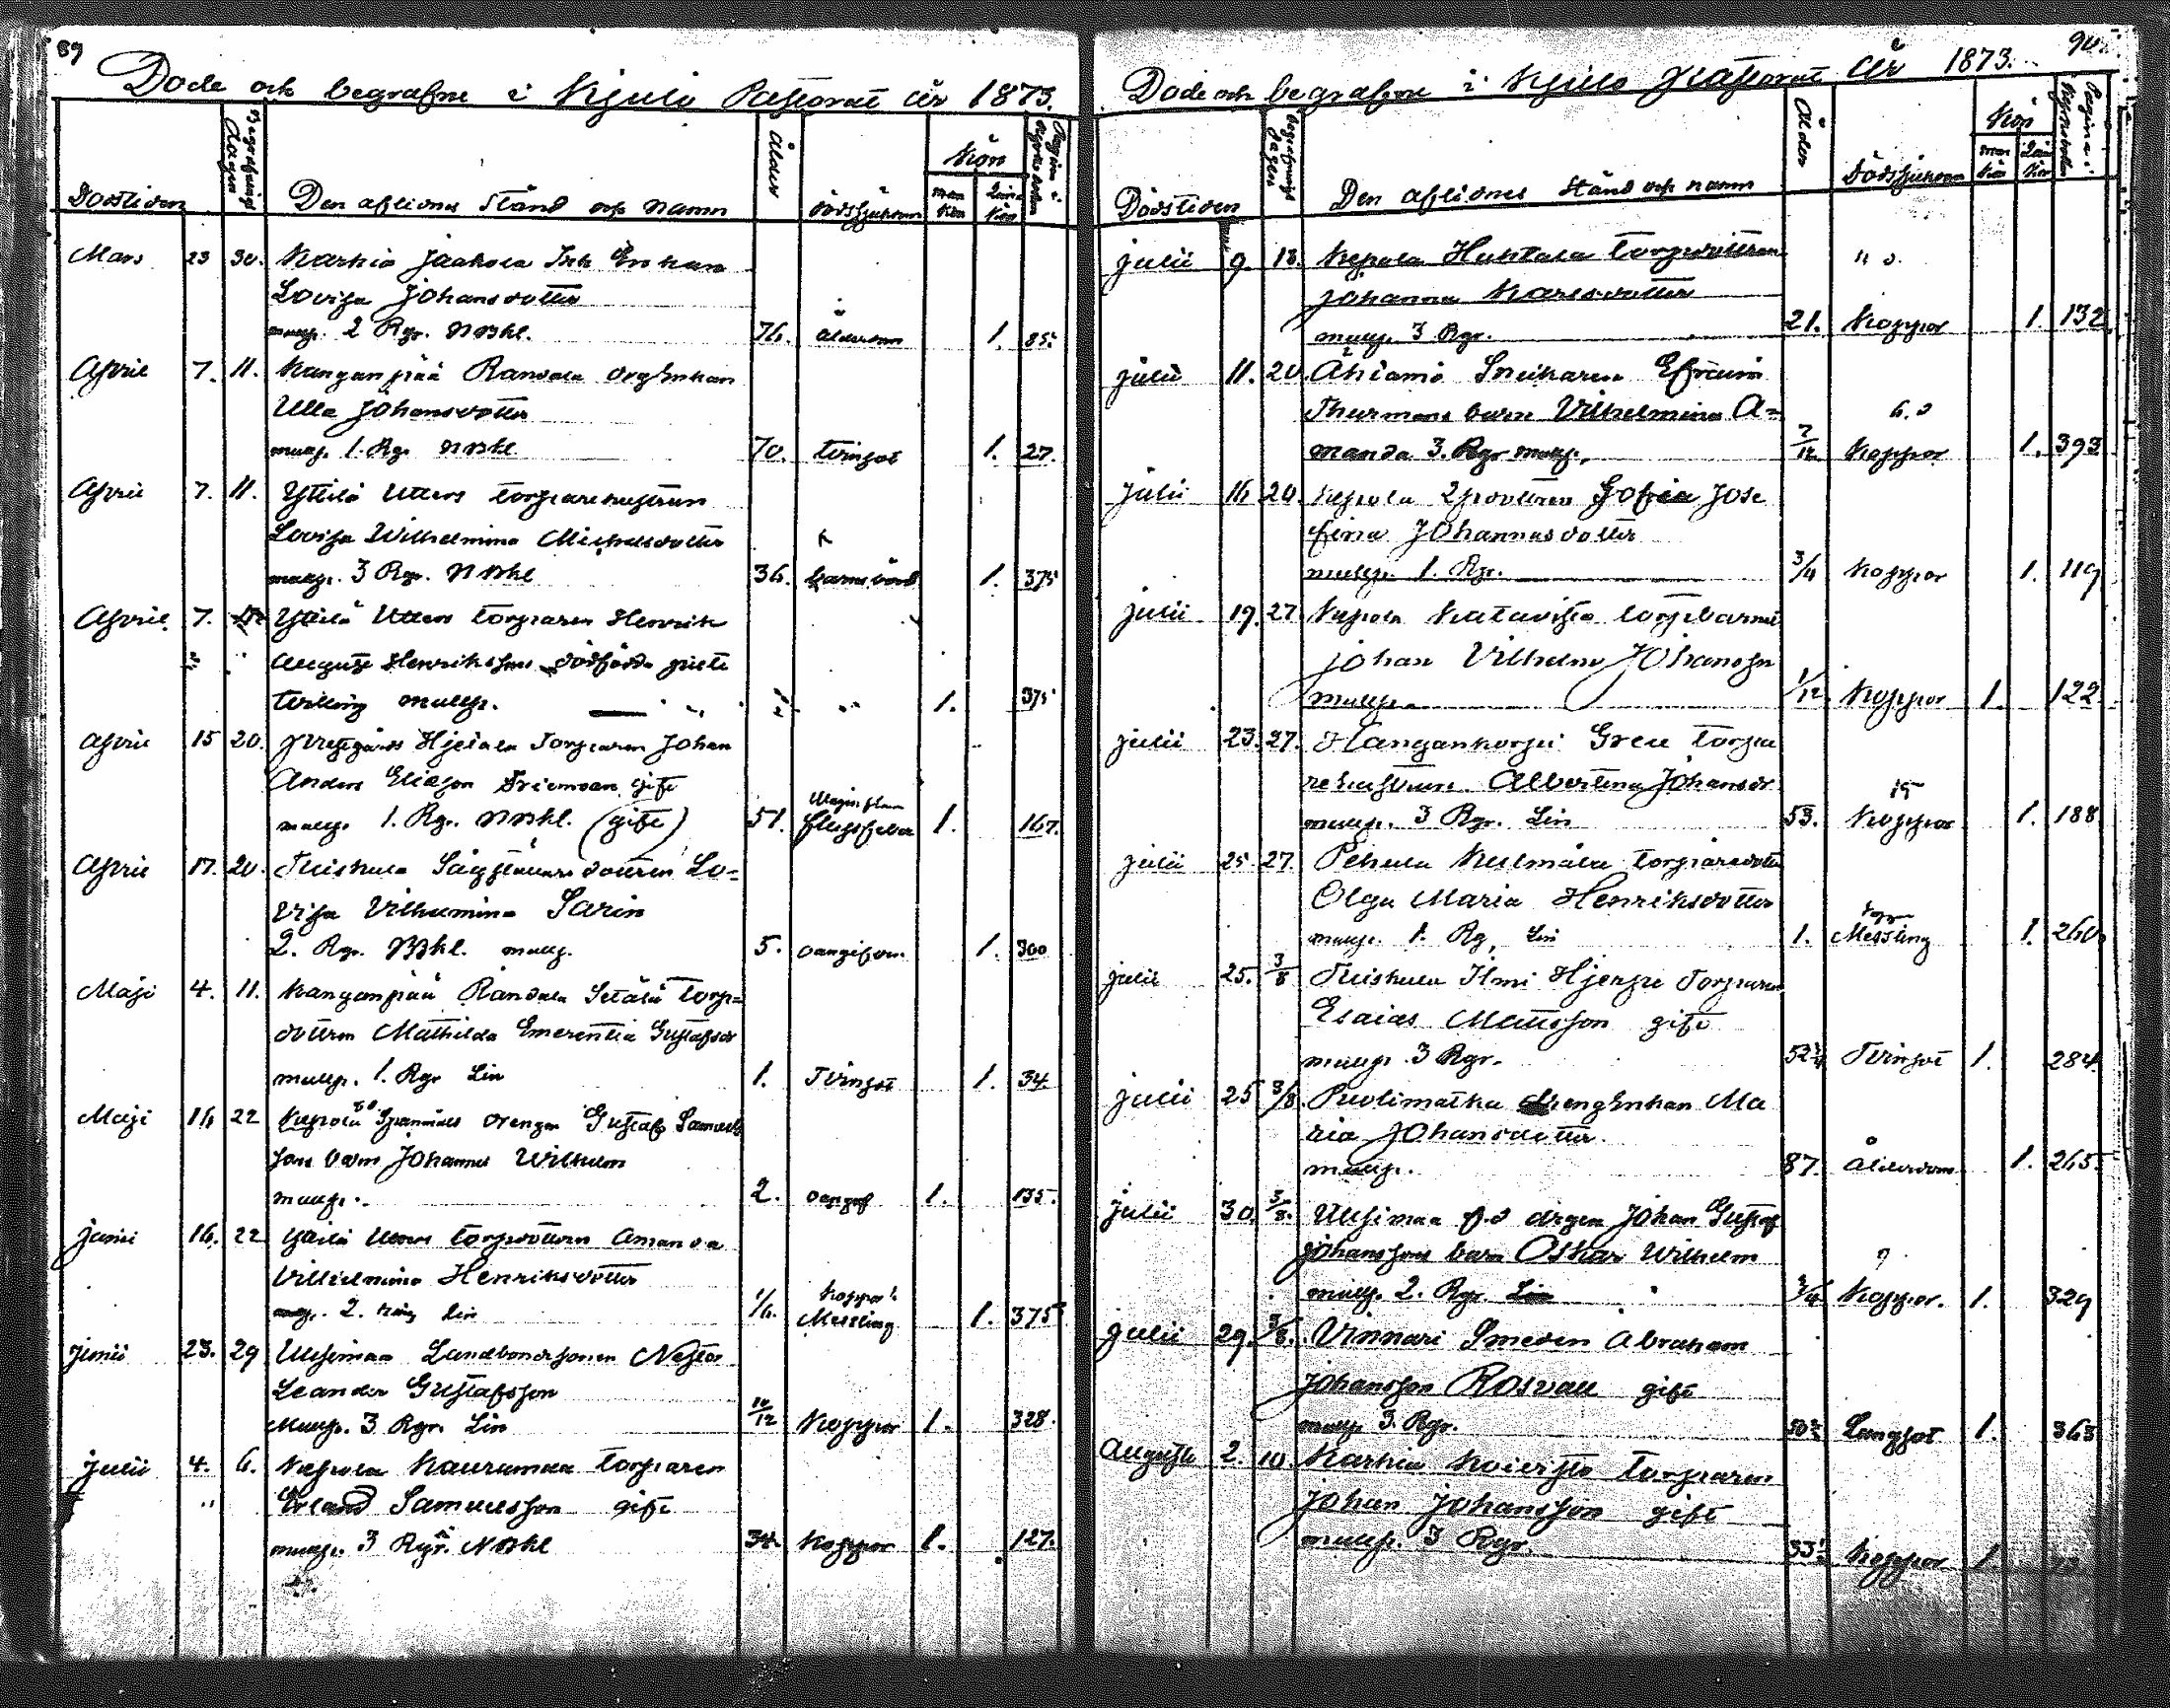 89
Döde och begrafne i Kjulo Pastorat år 1873.
Dödstiden Begrafnings Dagen Den aflidnes Stånd och Namn Ålder Dödssjukdom Kön Man kön Qvin kön Pagina i Kyrkoboken
Mars 23 30. Karhia Jaakola Inh Enkan
Lovisa Johansdotter
mullp. 2 Rgr. NBkl. 76. Ålderdom 1. 85.
April 7. 11. Kanganpää Randala Enkan
Ulla Johansdotter
mullp. 1. Rgr NBkl 70. tvinsot 1. 27.
April 7. 11. Yttilä Utters torparehustrun
Lovisa Wilhelmina Michelsdotter
mullp. 3 Rgr. NBkl 36. barnsbörd 1. 375
April 7. Yttilä Utters torparen Henrik
August Henrikssons dödfödda
tvilling mullp. 1. 375
April 15 20. Hjelala Torparen Johan
Anders Eliasson gift
mullp. 1. Rgr. NBkl. (gift) 51. 1. 167.
April 17. 20. Tuiskula dottren Lo-
visa Vilhemina Sarin
2. Rgr. NBkl. mullp. 5. 1. 300
Maji 4. 11. Kanganpää Randala Setälä torp-
dottren Mathilda Emerentia Gustafsdr
mullp. 1. Rgr Lin 1. Tvinsot 1. 34
Maji 16 22 Kepola drengen Gustaf Samuels
sons barn Johannes Wilhelm
mullp. 2. 1. 135.
Junii 16. 22 Yttilä Utters torpdottren Amanda
Vilhelmina Henriksdotter
2. Lin 1/6. koppor Messling 1. 375
Junii 23. 29 Uusimaa Landbondesonen Nestor
Leander Gustafsson
Mullp. 3 Rgr. Lin 10/12 Koppor 1. 328.
Julii 4. 6. Kepola Kaurumaa torparen
Erland Samuelsson gift
mullp. 3 Rgr. NBkl 34. Koppor 1. 127.
90.
Döde och begrafne i Kjulo Pastorat År 1873.
Dödstiden Begrafnings Dagen Den aflidnes stånd och namn Ålder Dödssjukdom Kön Man kön Qvin kön Pagina i Kyrkoboken
Julii 9. 13. Kepola Huhtala torpdottren
Johanna Karlsdotter
mullp. 3 Rgr. 21. Koppor 1. 132
Julii 11. 20. Ahlamo Efraim
Thurmans barn Vilhelmina A-
manda 3. Rgr mullp. 7/12 Koppor 1. 393
Julii 16 20. Kepola dottren Sofia Jose
fina Johannesdotter
mullp. 1. Rgr. 3/4 Koppor 1. 119
Julii 19. 27 Kepola Katavisto torpbarnet
Johan Vilhelm Johansson
mullp. 1/12 Koppor 1. 122
Julii 23. 27. Hangankorpi Greu torpa
rehustrun Albertina Johansdr
mullp. 3 Rgr. Lin 53. Koppor 1. 188
Julii 25. 27. Pehula Kulmala torparedotter
Olga Maria Henriksdotter
mullp. 1. Rg, Lin 1. Messling 1. 260
Julii 25. 3/8 Tuiskula Ilmi Hjerpe Torparen
Esaias Mattsson gift
mullp. 3 Rgr. 52 Tvinsot 1. 284.
Julii 25 3/8. Puolimatka Enkan Ma
ria Johansdotter.
mullp. 87. Ålderdom 1. 265.
Julii 30. 3/8. Uusimaa f.d drgen Johan Gustaf
Johanssons barn Oskar Wilhelm
mullp. 2. Rgr. Lin 3/4 Koppor. 1. 329
Julii 29. 3/8. Vinnari Smeden Abraham
Johansson Rosvall gift
mullp 3. Rgr. Lungsot 1. 363
Augusti 2. 10. Karhia Koivisto torparen
Johan Johansson gift
mullp. 3 Rgr. 33 Koppor 1